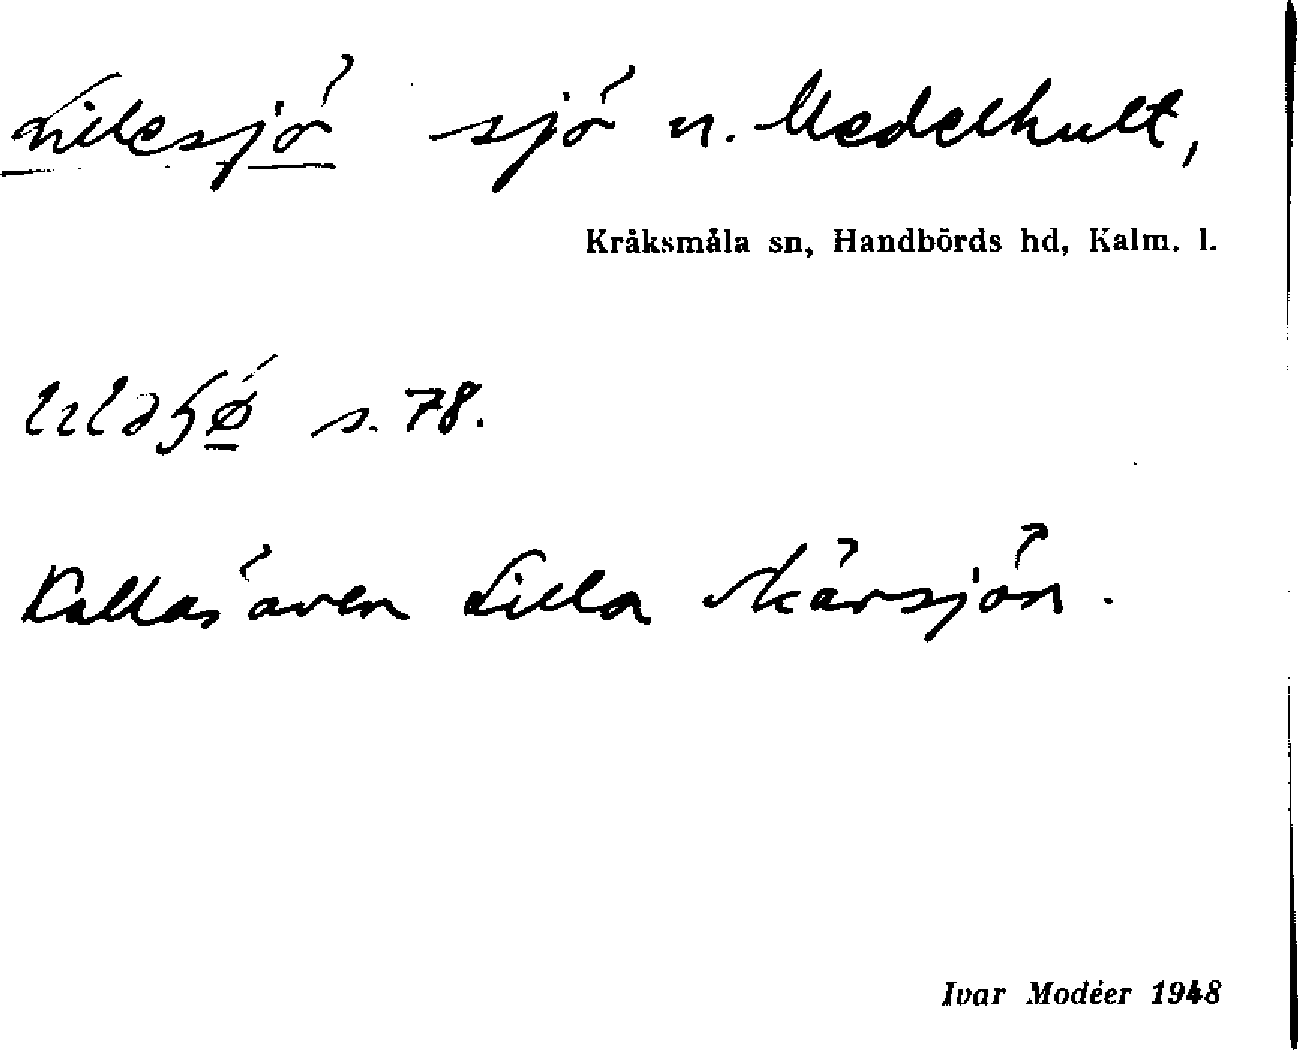 Lillesjö sjö n. Medelhult,
Kråksmåla sn, Handbörds hd, Kalm. l.
s. 78.
Kallas även Lilla Skärsjön.
Ivar Modéer 1948